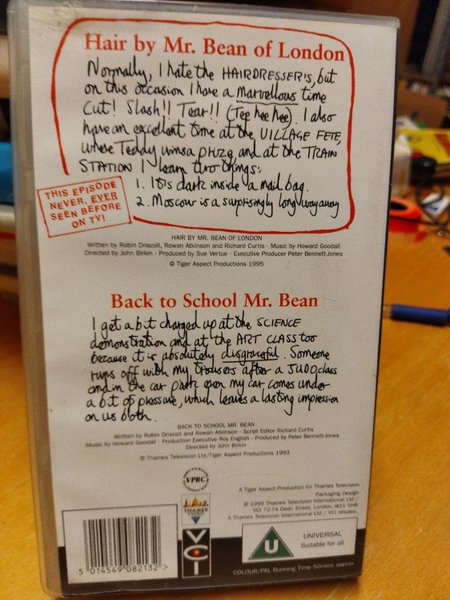 Hair by Mr. Bean of London
Normally, I hate the HAIRDRESSER'S, but
on this occasion I have a marvellous time
Cut! Slash!! Tear!! (Tee hee hee). I also
have an excellent time at the VILLAGE FETE,
where Teddy wins a prize and at the TRAIN
STATION I learn two things:
1. It is dark inside a mail bag.
2. Moscow is a surprisingly long way away
THIS EPISODE
NEVER, EVER
SEEN BEFORE
ON TV!
HAIR BY MR. BEAN OF LONDON
Written by Robin Driscoll, Rowan Atkinson and Richard Curtis · Music by Howard Goodall
Directed by John Birkin · Produced by Sue Vertue · Executive Producer Peter Bennett-Jones
© Tiger Aspect Productions 1995
Back to School Mr. Bean
I get a bit charged up at the SCIENCE
demonstration and at the ART CLASS too
because it is absolutely disgraceful. Someone
runs off with my trousers after a JUDO class
and in the car park even my car comes under
a bit of pressure, which leaves a lasting impression
on us both.
BACK TO SCHOOL MR. BEAN
Written by Robin Driscoll and Rowan Atkinson · Script Editor Richard Curtis
Music by Howard Goodall · Production Executive Roy English · Produced by Peter Bennett-Jones
Directed by John Birkin
© Thames Television Ltd/Tiger Aspect Productions 1993
VPRC
A Tiger Aspect Production for Thames Television
Packaging Design
© 1995 Thames Television International Ltd /
VCI 72-74 Dean Street, London, W1V 5HB
A Thames Television International Ltd / VCI release.
THAMES
VIDEO
VCI
U
UNIVERSAL
Suitable for all
5 014549 082132 >
COLOUR/PAL Running Time 50mins approx